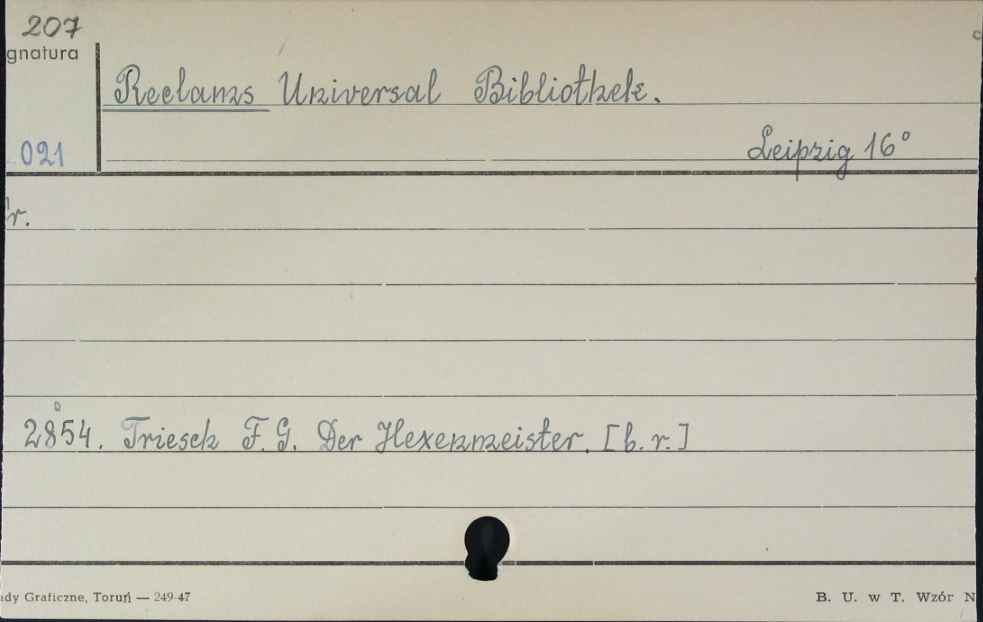 207
gnatura
Reclams Universal Bibliothek.
021
Leipzig 16°
r.
2854. Triesch F. G. Der Hexenmeister. [b. r.]
ady Graficzne, Toruń — 249-47
B. U. w T. Wzór N